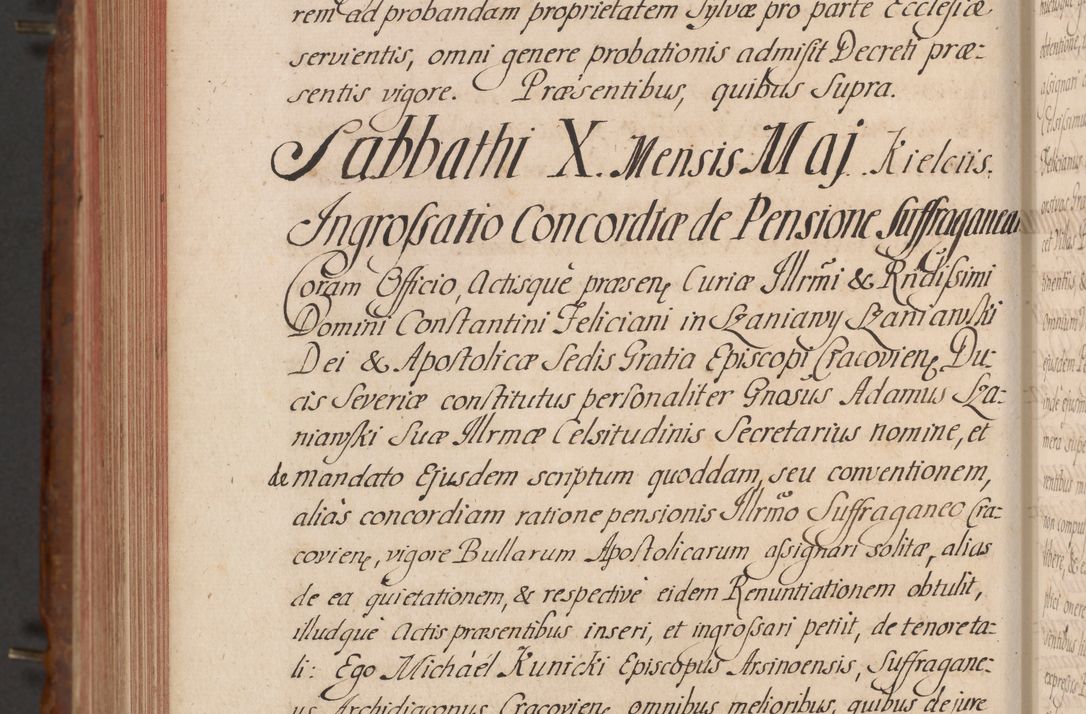 rem ad probandam proprietatem Sylvæ pro parte Ecclesiæ
servientis, omni genere probationis admisit Decreti præ-
sentis vigore. Præsentibus, quibus Supra.
Sabbathi X. Mensis Maj. Kielciis.
Ingrossatio Concordiæ de Pensione Suffraganea
Coram Officio, Actisquè præsenę Curiæ Illrm̃i & Rñdissimi
Domini Constantini Feliciani in Szaniawy Szaniawski
Dei & Apostolicæ Sedis Gratia Episcopi Cracovienę Du-
cis Severiæ constitutus personaliter Gnosus Adamus Sza-
niawski Suæ Illrmæ Celsitudinis Secretarius nomine, et
de mandato Ejusdem scriptum quoddam, seu conventionem,
aliàs concordiam ratione pensionis Illrm̃o Suffraganeo Cra-
covienę, vigore Bullarum Apostolicarum assignari solitæ, alias
de ea quietationem, & respectivè eidem Renuntiationem obtulit,
illudquè Actis præsentibus inseri, et ingrossari petiit, de tenore ta-
li: Ego Michàél Kunicki Episcopus Arsinoensis, Suffragane-
us Archidiaconus Cracovienę omnibus melioribus, quibus de jure